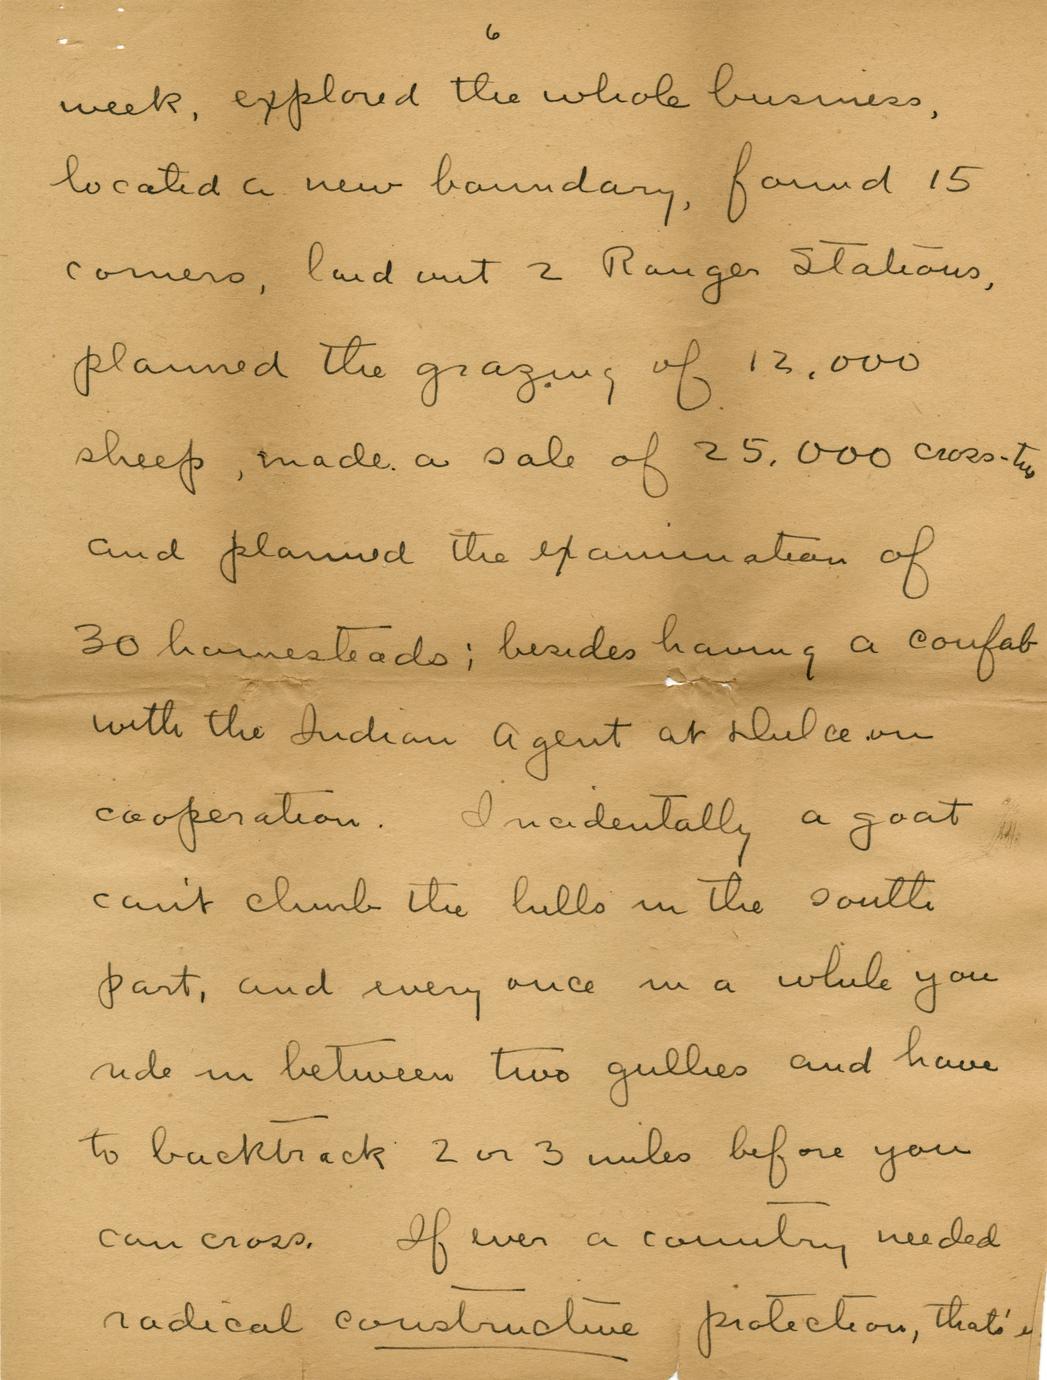 6
week, explored the whole business,
located a new boundary, found 15
corners, laid out 2 Ranger Stations,
planned the grazing of 12,000
sheep, made a sale of 25,000 cross-ties
and planned the examination of
30 homesteads; besides having a confab
with the Indian Agent at Dulce on
cooperation. Incidentally a goat
can't climb the hills in the south
part, and every once in a while you
ride in between two gullies and have
to backtrack 2 or 3 miles before you
can cross. If ever a country needed
radical constructive protection, that's